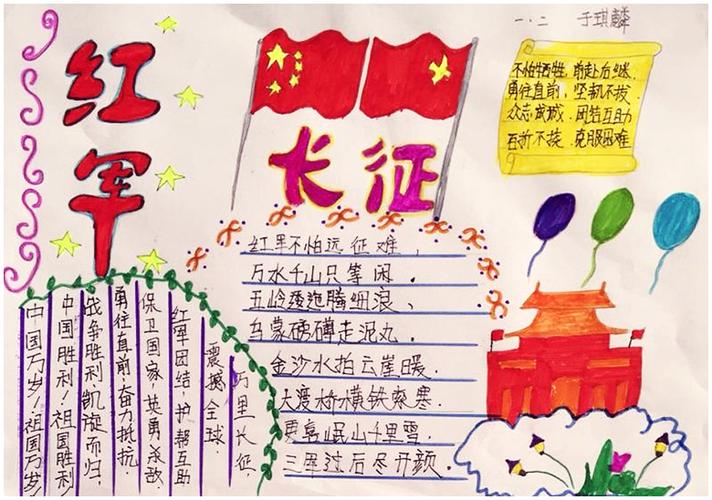 红军
长征
一.二 于琪麟
不怕牺牲，前赴后继。
勇往直前，坚韧不拔。
众志成城，团结互助
百折不挠，克服困难
红军不怕远征难，
万水千山只等闲。
五岭逶迤腾细浪、
乌蒙磅礴走泥丸。
金沙水拍云崖暖。
大渡桥横铁索寒.
更喜岷山千里雪.
三军过后尽开颜.
万里长征，
震撼全球.
红军团结，护帮互助
保卫国家 英勇杀敌.
勇往直前，奋力抵抗.
战争胜利，凯旋而归.
中国胜利！祖国胜利！
中国万岁！祖国万岁